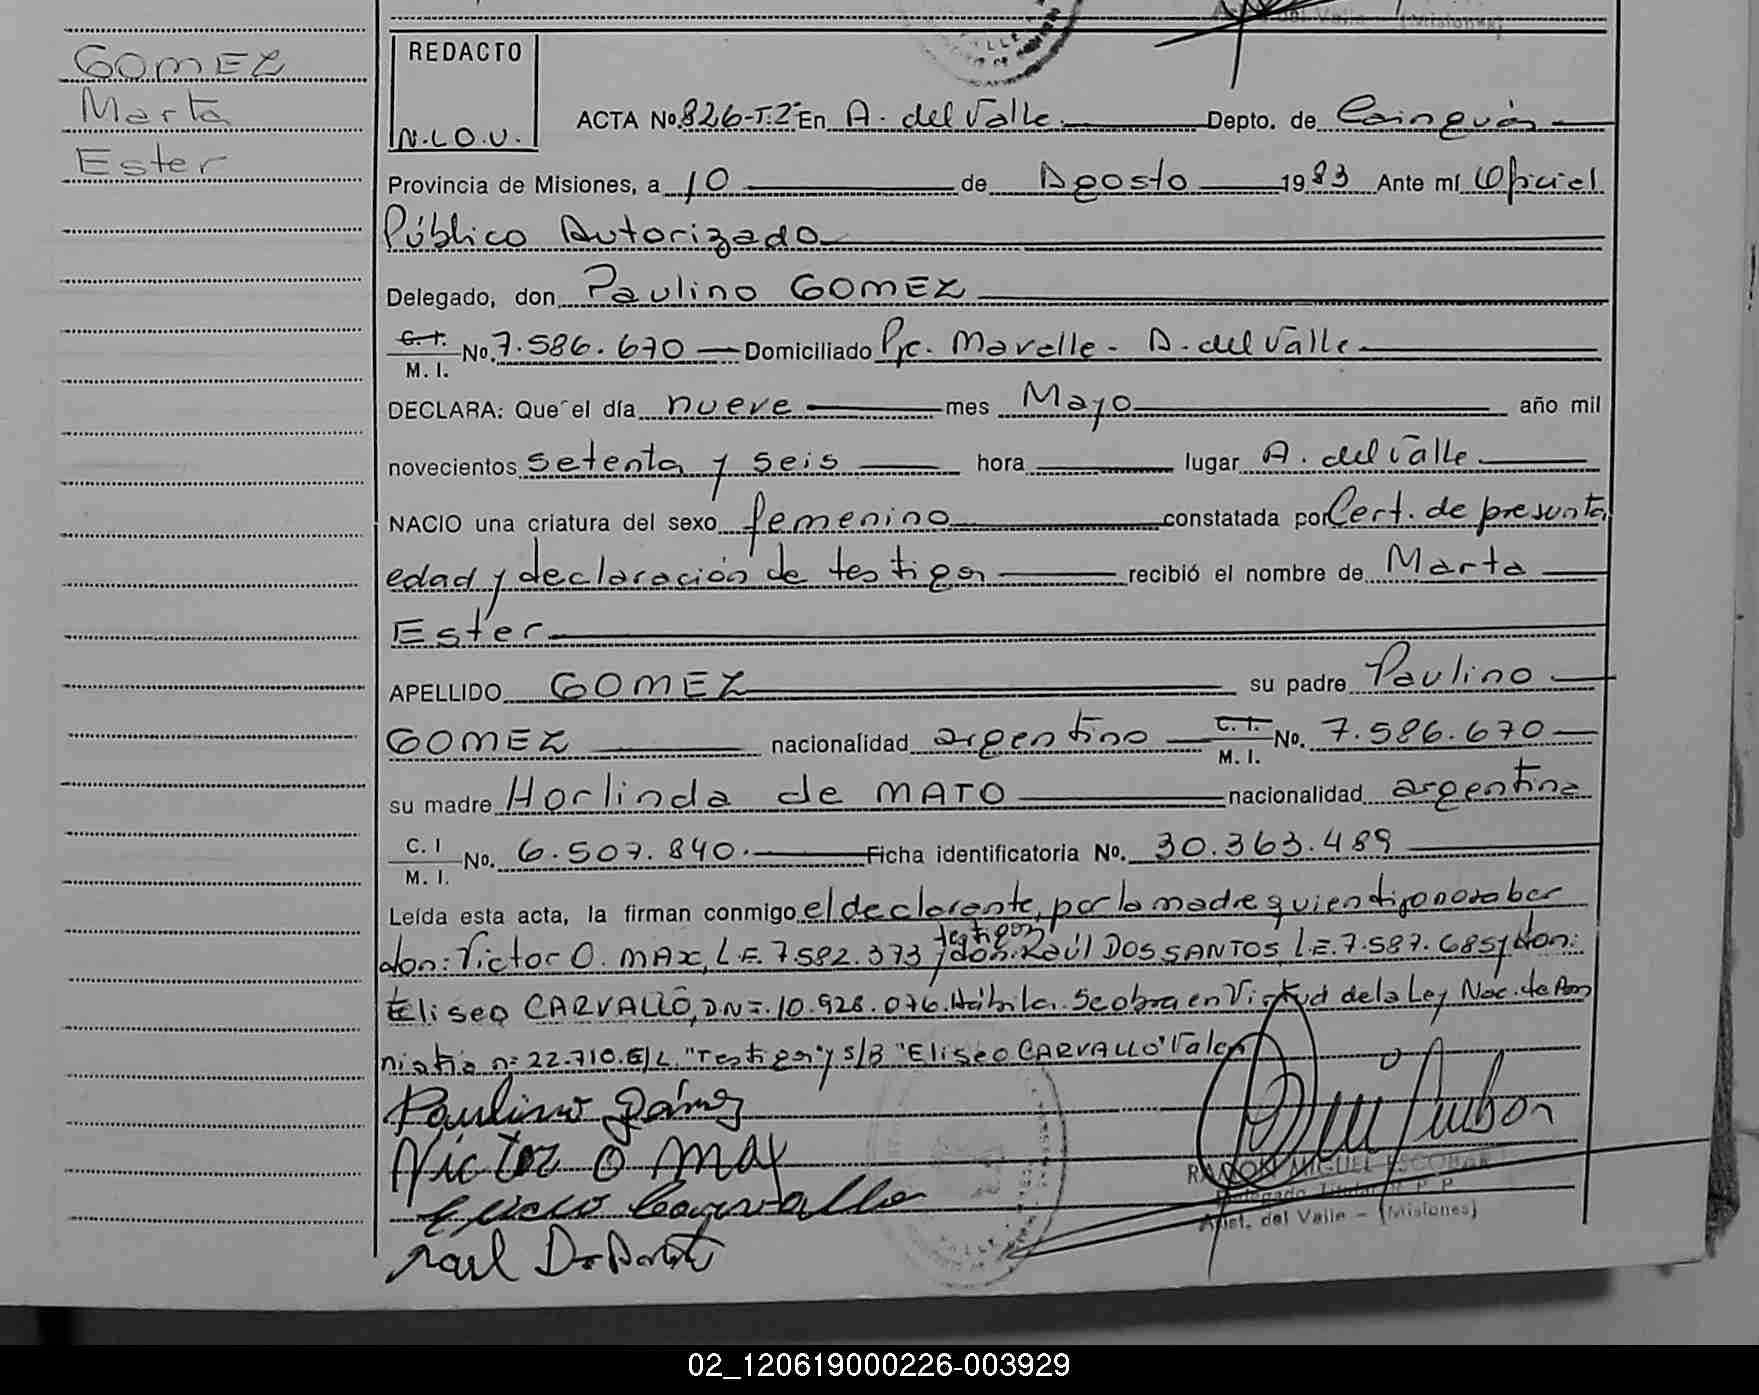 (Misiones)
GOMEZ
Marta
Ester
REDACTO
N.L.O.V.
ACTA No. 826-T:2º En A. del Valle Depto. de Cainguás
Provincia de Misiones, a 10 de Agosto 1983 Ante mí Oficial
Público Autorizado
Delegado, don Paulino GOMEZ
C. I. M. I. No. 7.586.670 Domiciliado Pje. Mavalle - A. del Valle
DECLARA: Que el día nueve mes Mayo año mil
novecientos setenta y seis hora lugar A. del Valle
NACIO una criatura del sexo femenino constatada por Cert. de presunta
edad y declaración de testigos recibió el nombre de Marta
Ester
APELLIDO GOMEZ su padre Paulino
GOMEZ nacionalidad argentino C. I. M. I. No. 7.586.670
su madre Horlinda de MATO nacionalidad argentina
C. I M. I. No. 6.507.840. Ficha identificatoria No. 30.363.489
Leída esta acta, la firman conmigo el declarante, por la madre quien dijo no saber
don: Victor O. MAX, L.E. 7.582.373 y testigos don: Raúl DOS SANTOS, L.E. 7.587.685 y don:
Eliseo CARVALLO, D.N.I. 10.928.076. Hábiles. Se obra en Virtud de la Ley Nac. de Am
nistia nº 22.710. E/L. "Testigos" y S/B "Eliseo CARVALLO" Valen
Paulino Gómez
Victor O Max
Eliseo Carvallo
Raul Do Santo
RAMON MIGUEL ESCOBAR
Delegado Titular R. P. P.
Arist. del Valle - (Misiones)
02_120619000226-003929